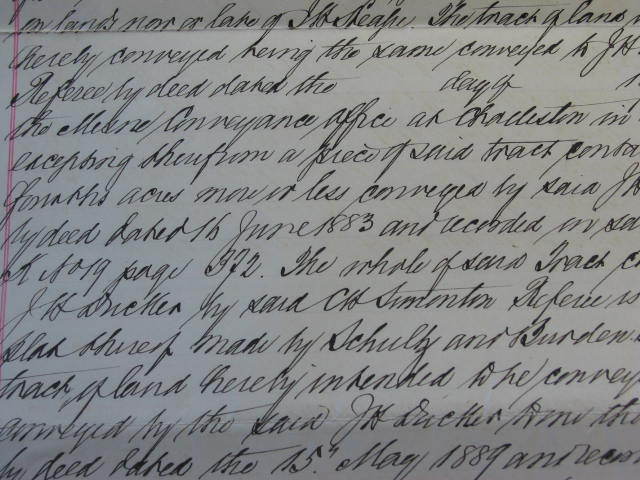 on lands now or late of JH Seahe. The tract of land
hereby conveyed being the same conveyed to JH
Referee by deed dated the day of
the Mesne Conveyance office at Charleston in
excepting therefrom a piece of said tract conta
fourths acres more or less conveyed by said JH
by deed dated 16 June 1883 and recorded in sa
K No 19 page 372. The whole of said Tract c
JH Ducker by said CH Simonton Referee
plat thereof made by Schultz and Burden
tract of land hereby intended to be convey
conveyed by the said JH Ducker to me the
by deed dated the 15th May 1889 and recor